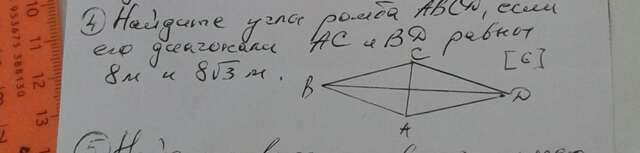 ④ Найдите углы ромба ABCD, если
его диагонали AC и BD равны
8м и 8√3 м.
[6]
C
B
D
A
⑤
10 11 12 13